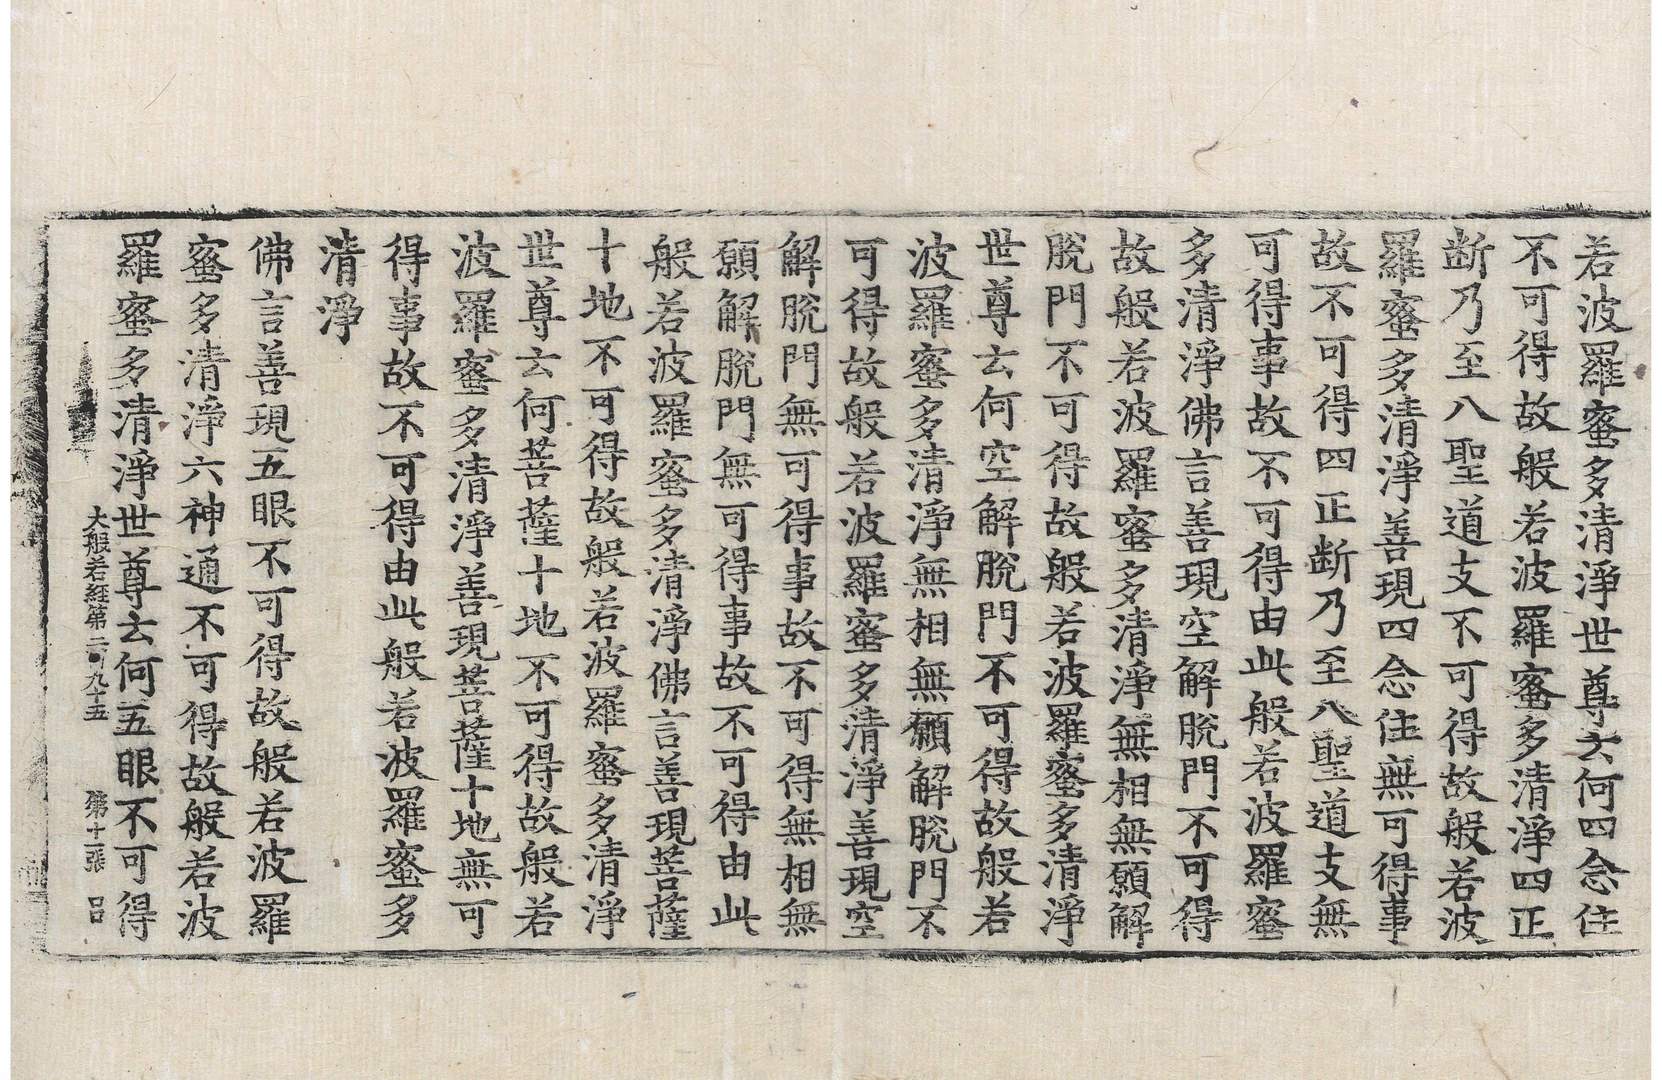 若波羅蜜多清淨世尊云何四念住
不可得故般若波羅蜜多清淨四正
断乃至八聖道支不可得故般若波
羅蜜多清淨善現四念住無可得事
故不可得四正断乃至八聖道支無
可得事故不可得由此般若波羅蜜
多清淨佛言善現空解脫門不可得
故般若波羅蜜多清淨無相無願解
脫門不可得故般若波羅蜜多清淨
世尊云何空解脫門不可得故般若
波羅蜜多清淨無相無願解脫門不
可得故般若波羅蜜多清淨善現空
解脫門無可得事故不可得無相無
願解脫門無可得事故不可得由此
般若波羅蜜多清淨佛言善現菩薩
十地不可得故般若波羅蜜多清淨
世尊云何菩薩十地不可得故般若
波羅蜜多清淨善現菩薩十地無可
得事故不可得由此般若波羅蜜多
清淨
佛言善現五眼不可得故般若波羅
蜜多清淨六神通不可得故般若波
羅蜜多清淨世尊云何五眼不可得
大般若經第二百九十五 第十二張 呂